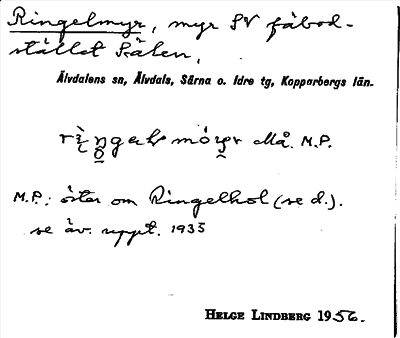 Ringelmyr, myr SV fäbod-
stället Kälen,
Älvdalens sn, Älvdals, Särna o. Idre tg, Kopparbergs län.
Må. M.P.
M.P.: öster om Ringelhol (se d.).
se äv. uppt. 1935
HELGE LINDBERG 1956.